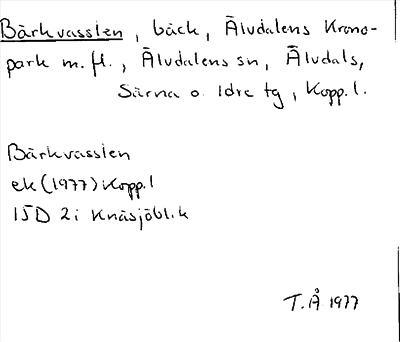 Bärkvasslen, bäck, Älvdalens Krono-
park m.fl., Älvdalens sn, Älvdals,
Särna o. Idre tg, Kopp.l.
Bärkvasslen
ek (1977) Kopp.l
15D 2i Knäsjöblik
T.Å 1977